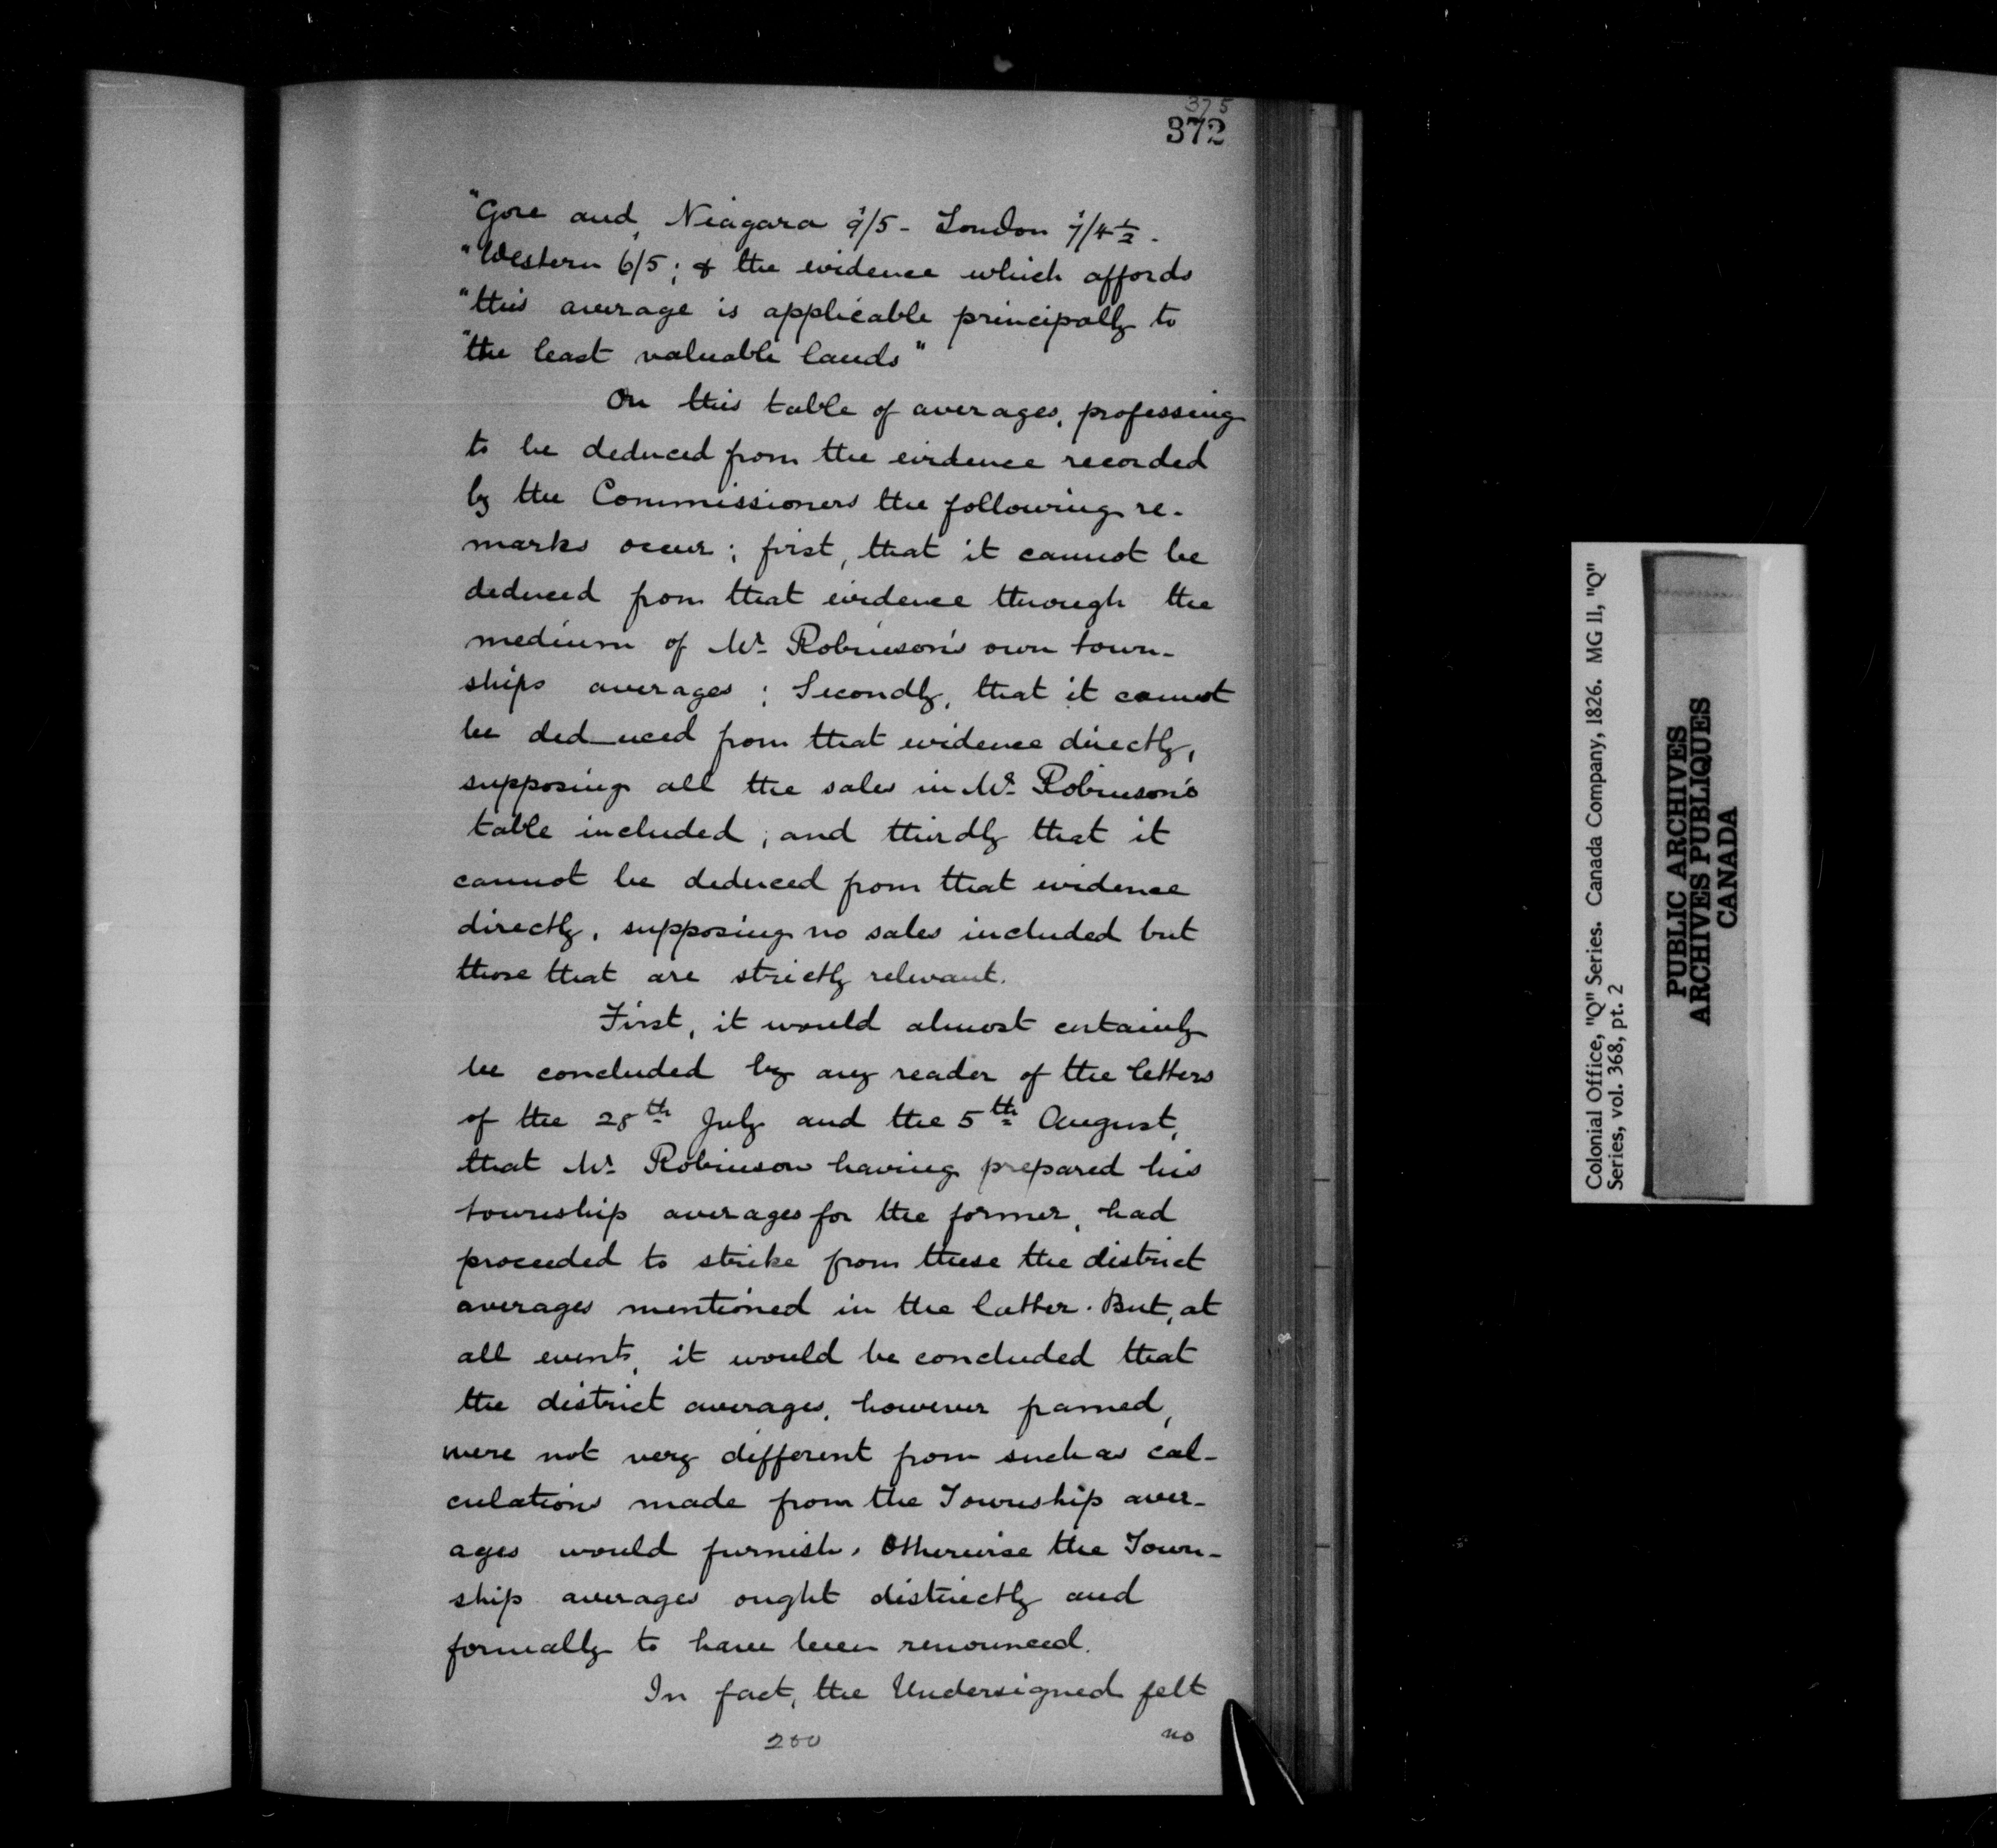 375
372
"Gore and, Niagara 9/5 - London 7/4½ -
"Western 6/5; & the evidence which affords
"this average is applicable principally to
"the least valuable lands"
On this table of averages, professing
to be deduced from the evidence recorded
by the Commissioners the following re-
marks occur; first, that it cannot be
deduced from that evidence through the
medium of Mr. Robinson's own town-
ships averages; Secondly, that it cannot
be ded_uced from that evidence directly,
supposing all the sales in Mr. Robinson's
table included; and thirdly that it
cannot be deduced from that evidence
directly, supposing no sales included but
those that are strictly relevant.
First, it would almost certainly
be concluded by any reader of the letters
of the 28th July and the 5th August,
that Mr. Robinson having prepared his
township averages for the former, had
proceeded to strike from these the district
averages mentioned in the latter. But, at
all events, it would be concluded that
the district averages, however framed,
were not very different from such as cal-
culations made from the Township aver-
ages would furnish. Otherwise the Town-
ship averages ought distinctly and
formally to have been renounced.
In fact, the Undersigned felt
200
no
Colonial Office, "Q" Series. Canada Company, 1826. MG 11, "Q"
Series, vol. 368, pt. 2
PUBLIC ARCHIVES
ARCHIVES PUBLIQUES
CANADA